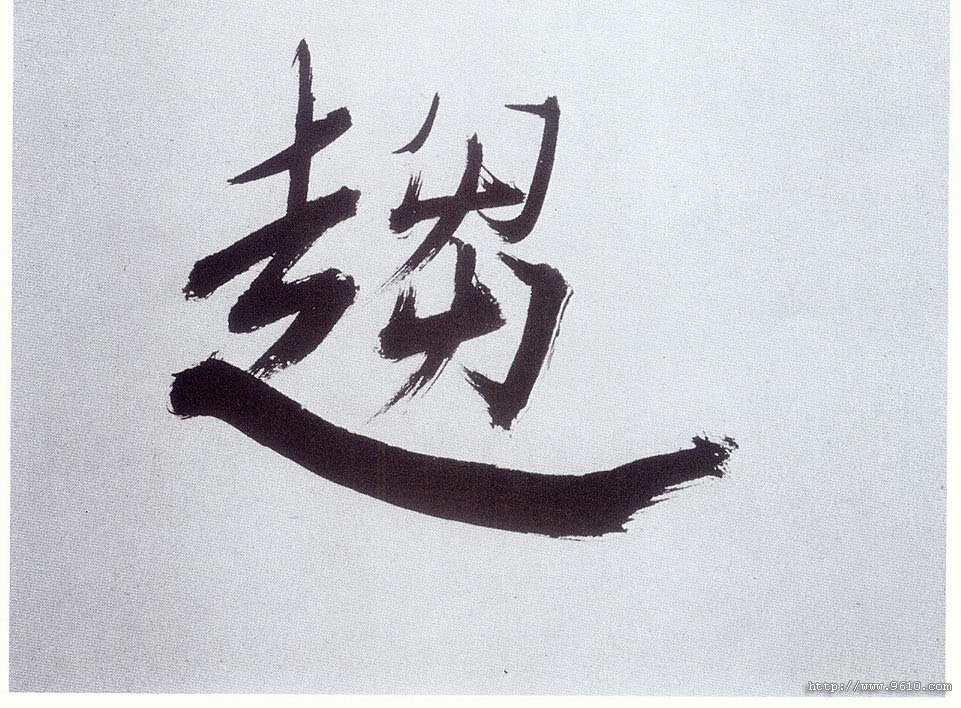 趨
http://www.9610.com